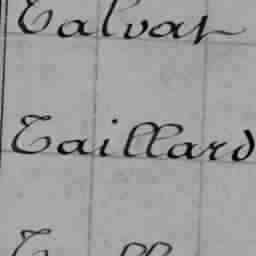 Talvat
Taillard